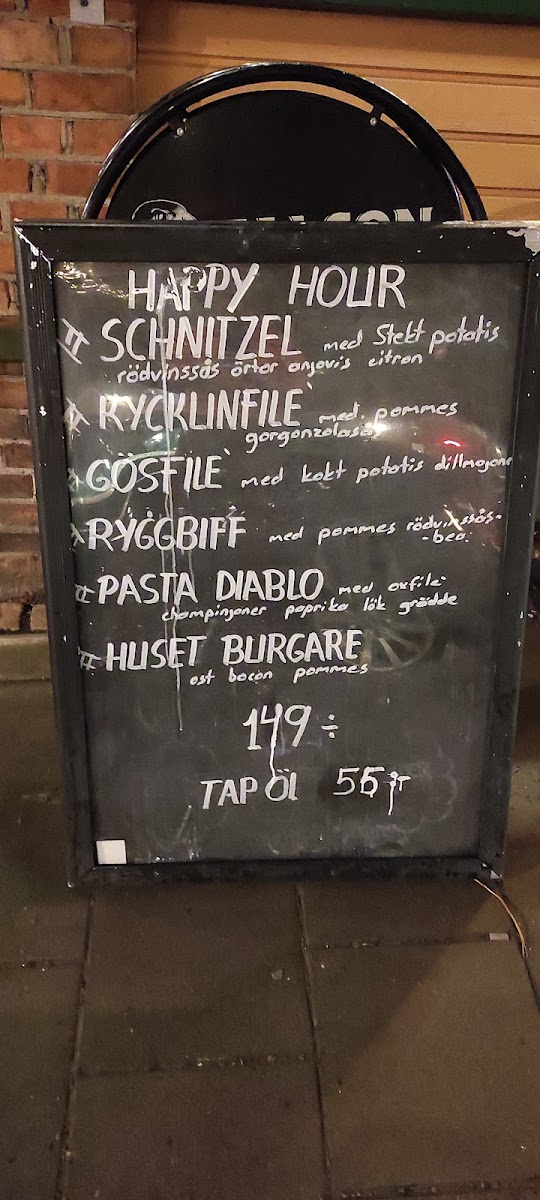 HAPPY HOUR
SCHNITZEL med Stekt potatis
rödvinssås örtor anjovis citron
KYCKLINFILE` med pommes
gorgonzolasås
GÖSFILE` med kokt potatis dillmajonn
RYGGBIFF med pommes rödvinssås-
-bea.
PASTA DIABLO med oxfile`
champinjoner paprika lök grädde
HUSET BURGARE
ost bacon pommes
149 ÷
TAP Öl 55